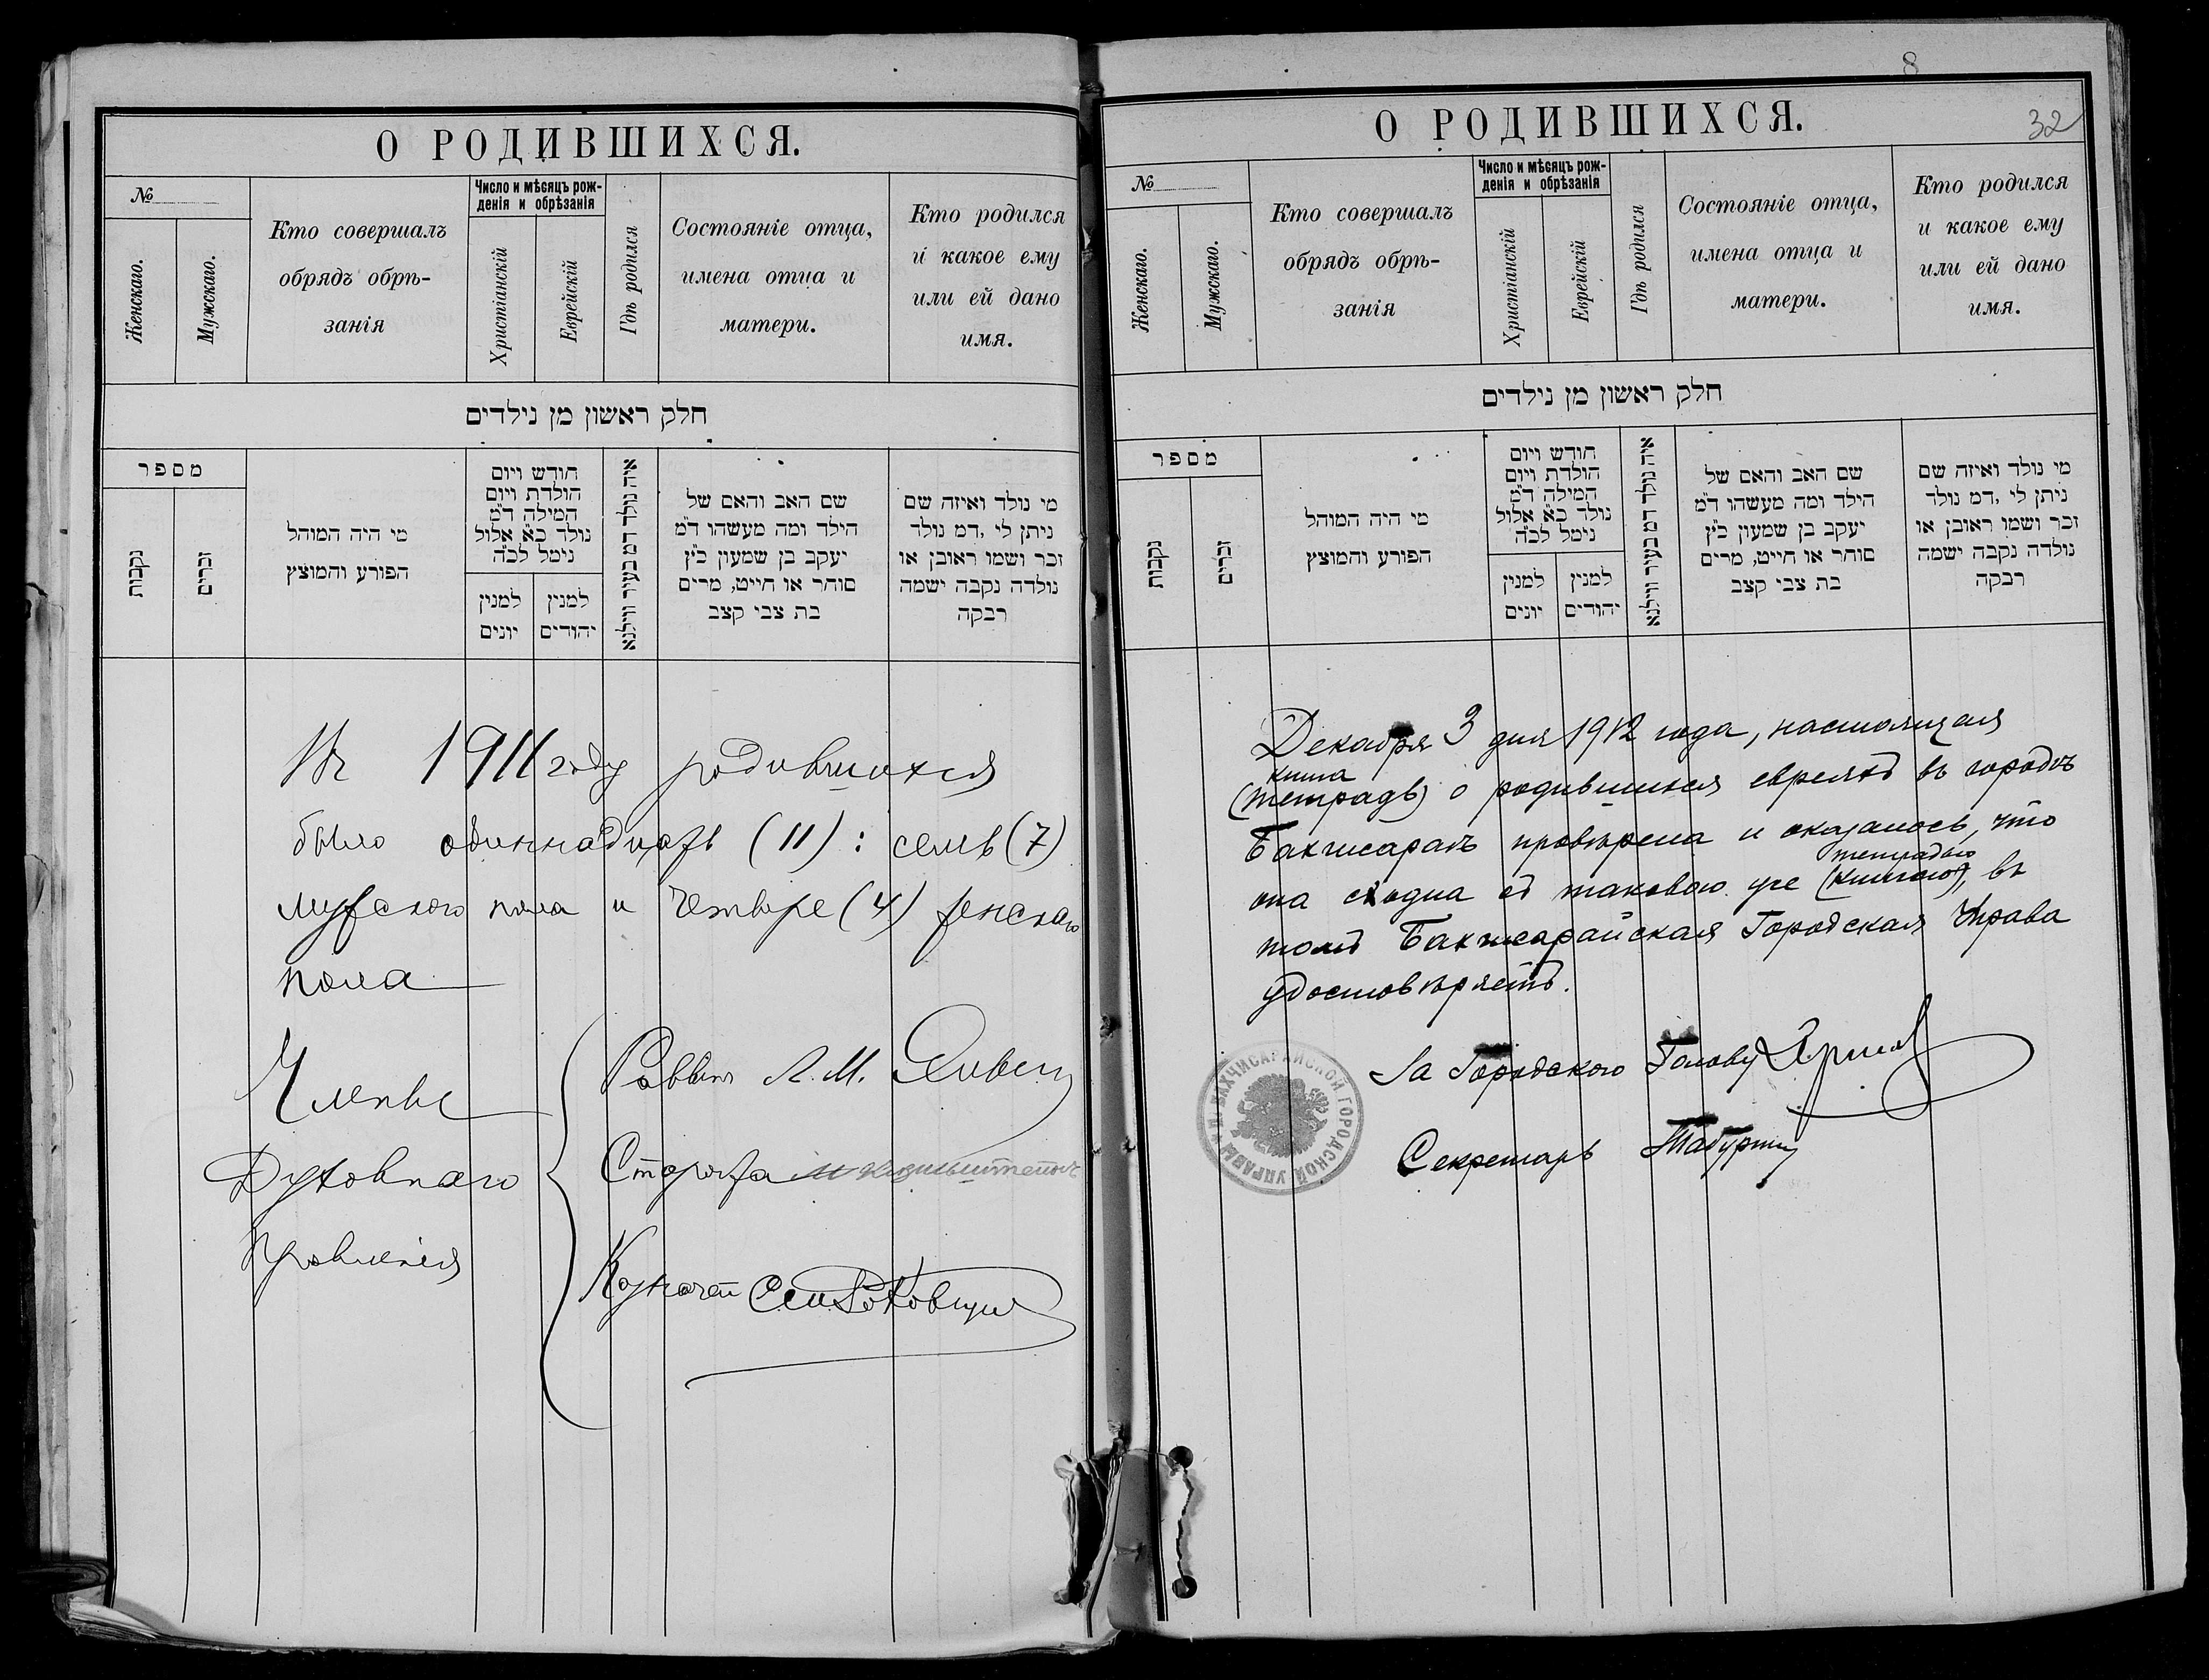 О РОДИВШИХСЯ.
№
Женскаго.
Мужскаго.
Кто совершалъ
обрядъ обрѣ-
занія
Число и мѣсяцъ рож-
денія и обрѣзанія
Христіанскій
Еврейскій
Гдѣ родился
Состояніе отца,
имена отца и
матери.
Кто родился
и какое ему
или ей дано
имя.
חלק ראשון מן נילדים
מספר
נקבות
זכרים
מי היה המוהל
הפורע והמוצץ
חודש ויום
הולדת ויום
המילה ד"מ
נולד כ"א אלול
נימל לכ"ה
למנין
יונים
למנין
יהודים
איה נולד דמ בעיר ווילנא
שם האב והאם של
הילד ומה מעשהו ד"מ
יעקב בן שמעון כ"ץ
סוחר או חייט, מרים
בת צבי קצב
מי נולד ואיזה שם
ניתן לי ,דמ נולד
זכר ושמו ראובן או
נולדה נקבה ישמה
רבקה
Въ 1911 году родившихся
было одиннадцать (11): семь (7)
мужского пола и четыре (4) женскаго
пола
Члены
Духовнаго
Правленія
Раввинъ Л. М.
Староста
Казначей
8
О РОДИВШИХСЯ.
32
№
Женскаго.
Мужскаго.
Кто совершалъ
обрядъ обрѣ-
занія
Число и мѣсяцъ рож-
денія и обрѣзанія
Христіанскій
Еврейскій
Гдѣ родился
Состояніе отца,
имена отца и
матери.
Кто родился
и какое ему
или ей дано
имя.
חלק ראשון מן נילדים
מספר
נקבות
זכרים
מי היה המוהל
הפורע והמוצץ
חודש ויום
הולדת ויום
המילה ד"מ
נולד כ"א אלול
נימל לכ"ה
למנין
יונים
למנין
יהודים
איה נולד דמ בעיר ווילנא
שם האב והאם של
הילד ומה מעשהו ד"מ
יעקב בן שמעון כ"ץ
סוחר או חייט, מרים
בת צבי קצב
מי נולד ואיזה שם
ניתן לי ,דמ נולד
זכר ושמו ראובן או
נולדה נקבה ישמה
רבקה
Декабря 3 дня 1912 года, настоящая
книга
(тетрадь) о родившихся евреяхъ въ городѣ
Бахчисараѣ провѣрена и оказалось, что
тетрадью
она сходна съ таковою же (книгою), въ
томъ Бахчисарайская Городская Управа
удостовѣряетъ.
За Городского Голову
Секретарь
БАХЧИСАРАЙСКОЙ ГОРОДСКОЙ УПРАВЫ